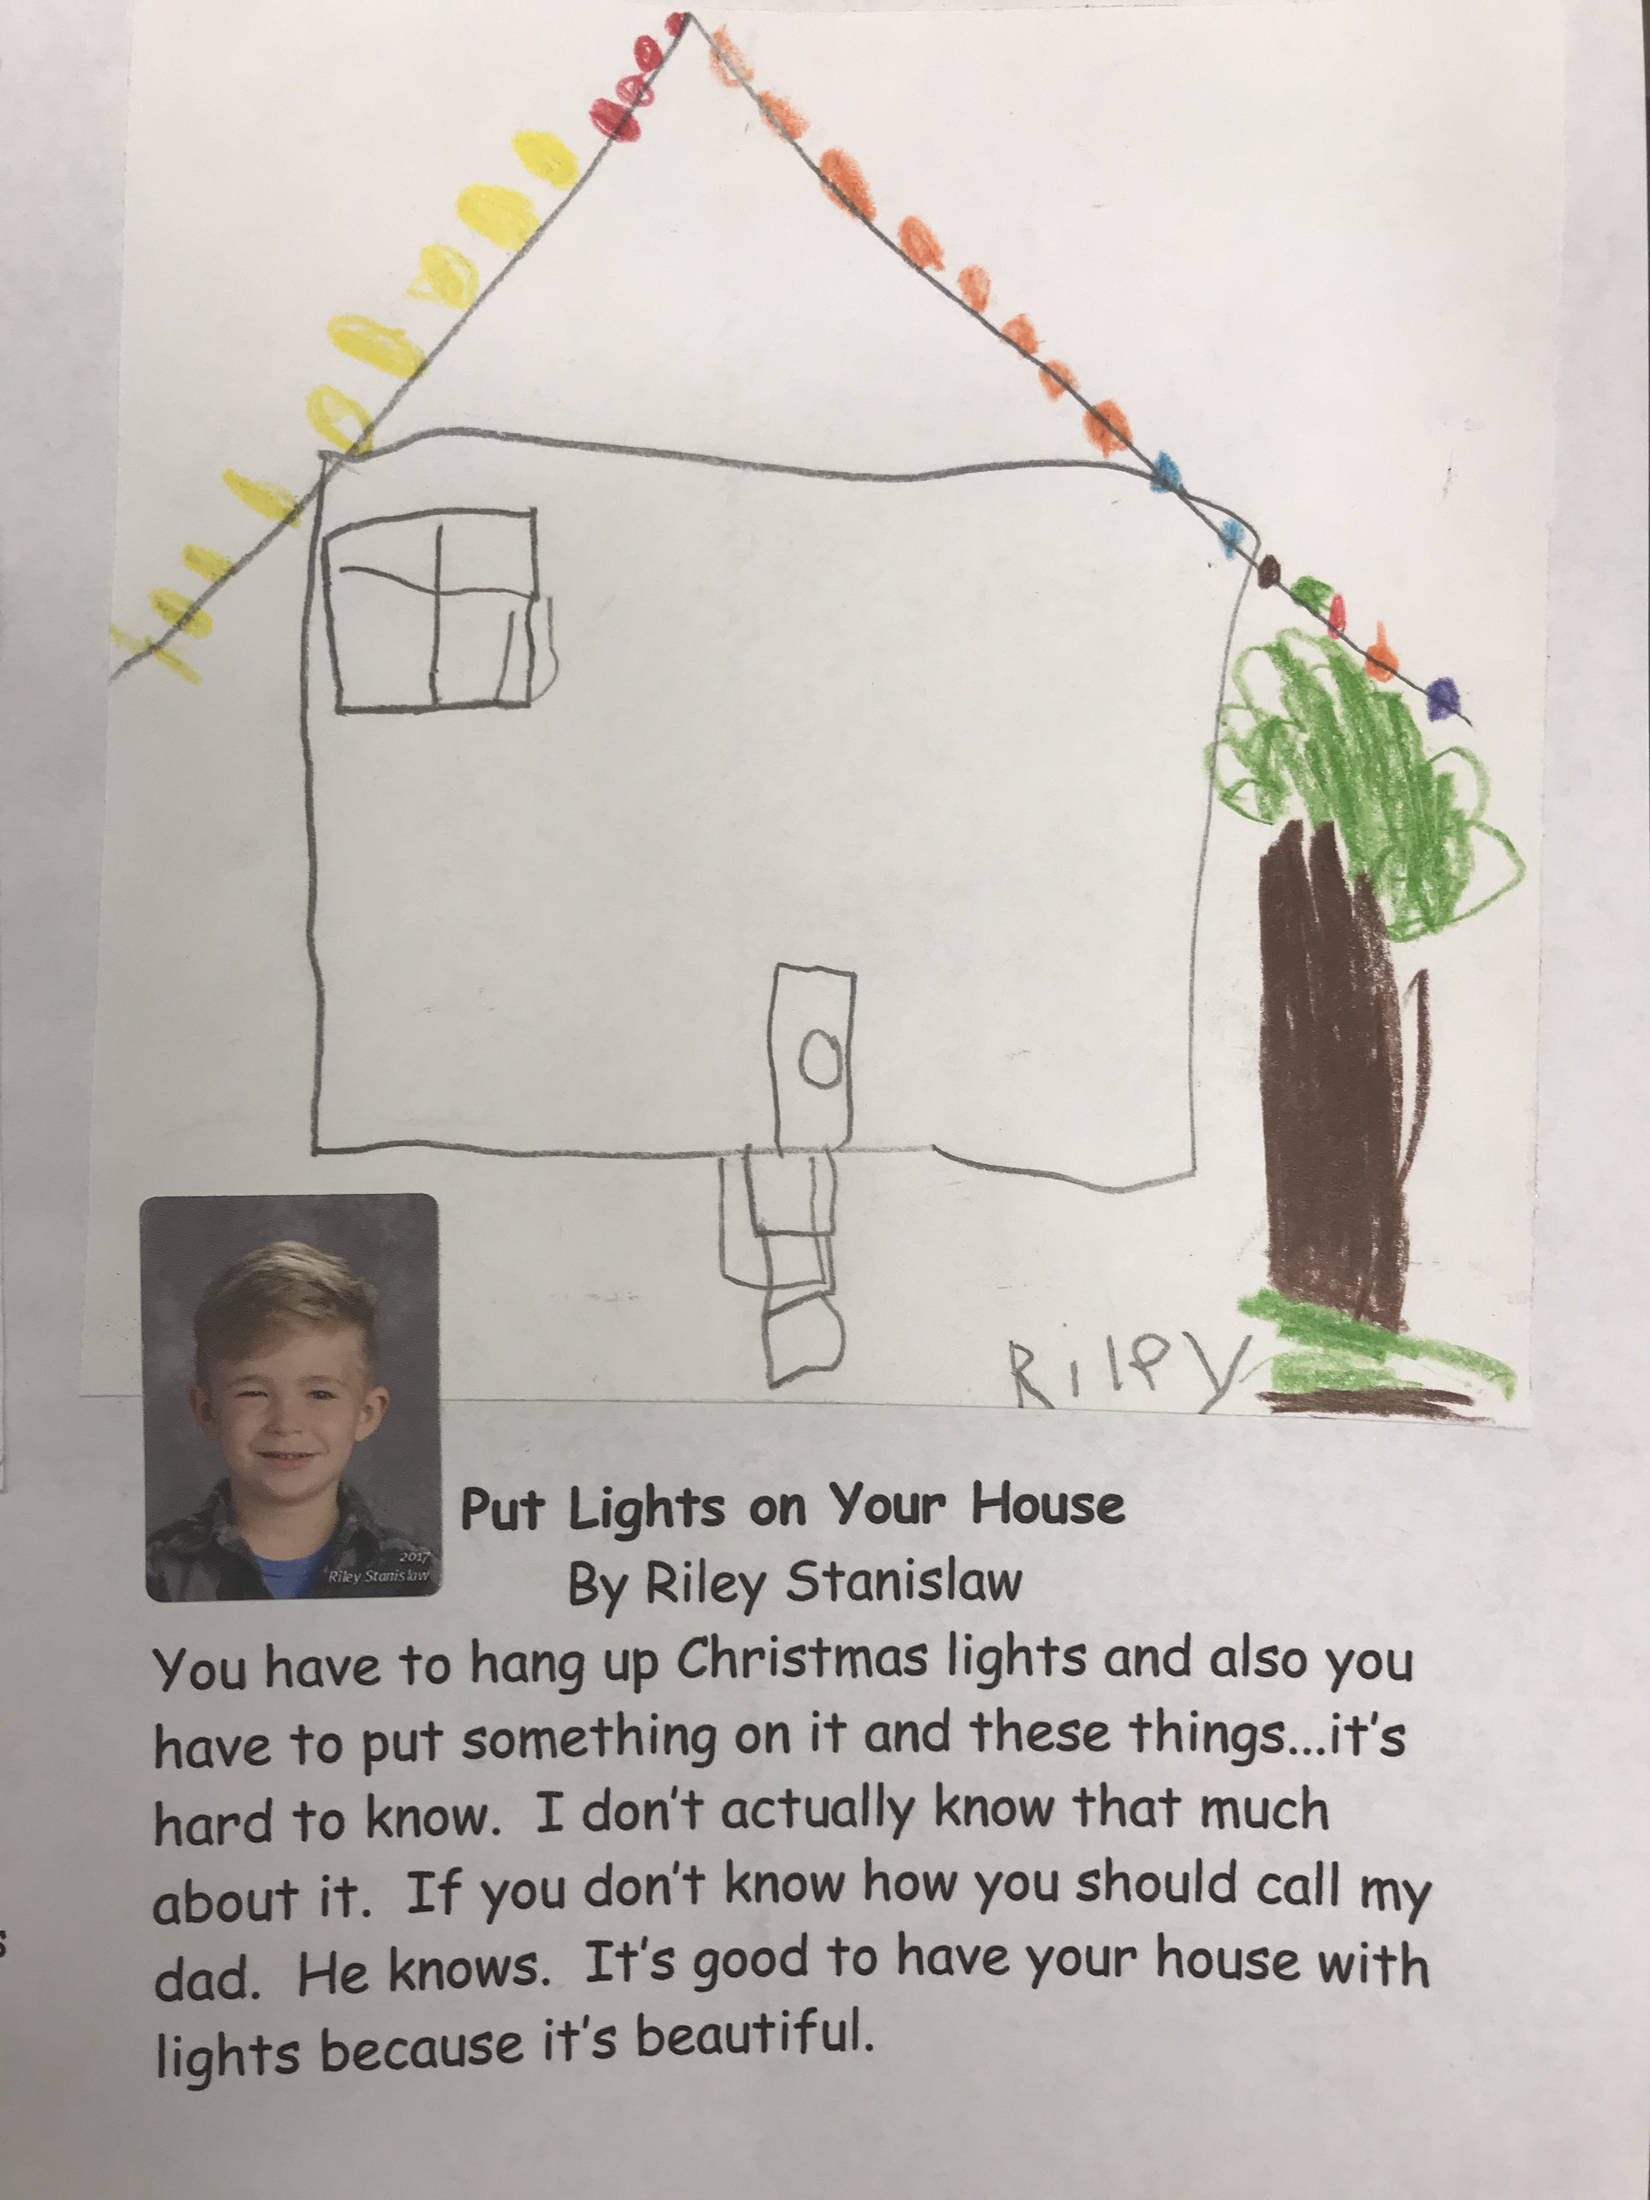 RilEY
2017
Riley Stanislaw
Put Lights on Your House
By Riley Stanislaw
You have to hang up Christmas lights and also you
have to put something on it and these things...it's
hard to know.  I don't actually know that much
about it.  If you don't know how you should call my
dad.  He knows.  It's good to have your house with
lights because it's beautiful.